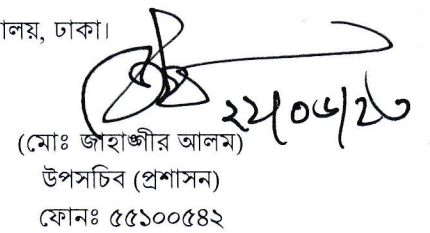 ালয়, ঢাকা।
(মোঃ জাহাঙ্গীর আলম)
উপসচিব (প্রশাসন)
ফোনঃ ৫৫১০০৫৪২